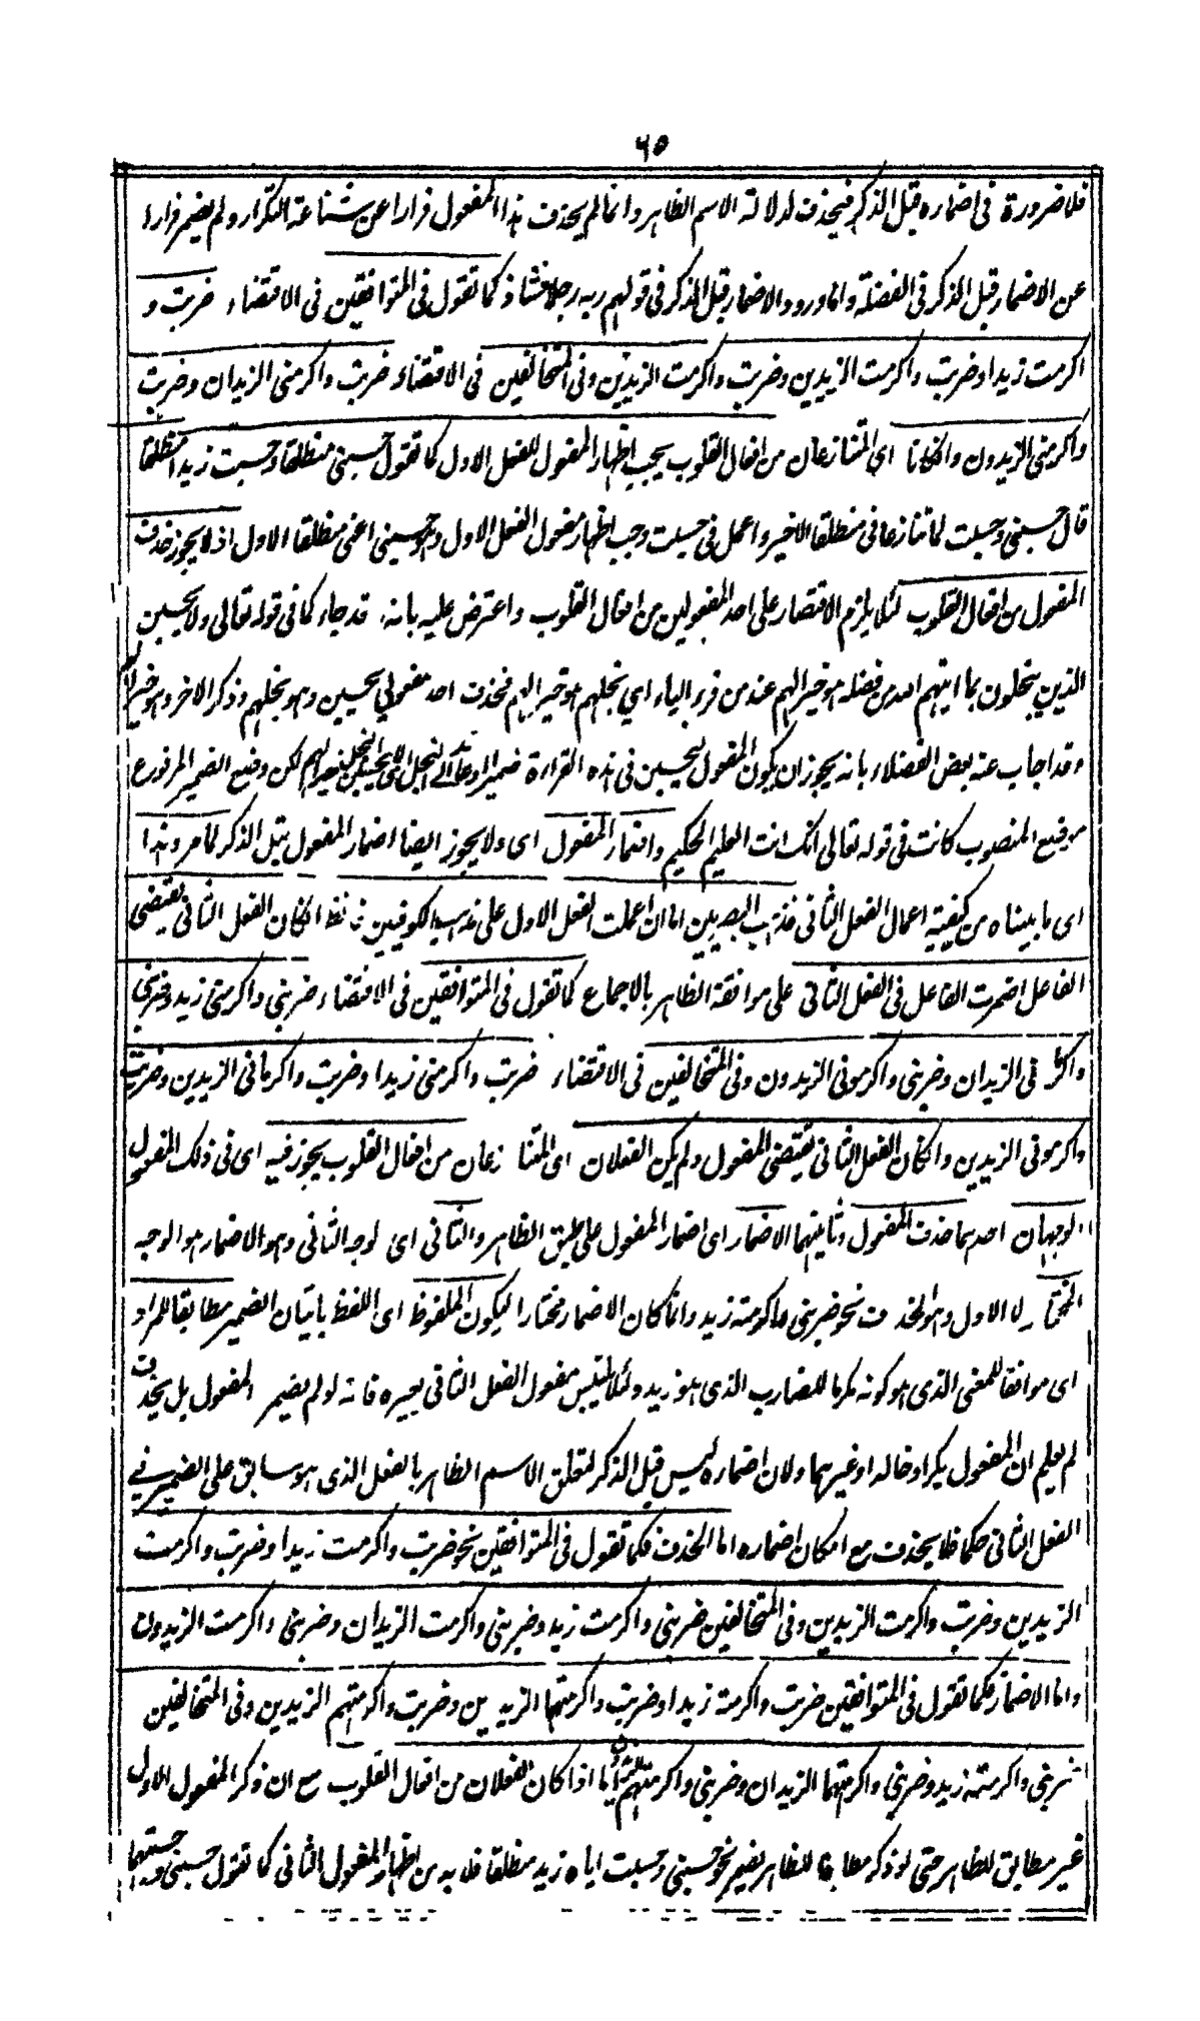 ٦٥
فلا ضرورة فى اضماره قبل الذكر فيحذف لدلالة الاسم الظاهر وانما لم يحذف هذا المفعول فرارا عن شناعة التكرار ولم يضمر فرارا
عن الاضمار قبل الذكر فى الفضلة واما ورود الاضمار قبل الذكر فى قولهم ربه رجلا فشاذ كما تقول فى المتوافقين فى الاقتضاء ضربت و
اكرمت زيدا وضربت واكرمت الزيدين وضربت واكرمت الزيدين وفى المتخالفين فى الاقتضاء ضربت واكرمنى الزيدان وضربت
واكرمنى الزيدون وان كانا اي المتنازعان من افعال القلوب يجب اظهار المفعول للفعل الاول كما تقول حسبنى منطلقا وحسبت زيدا منطلقا
قال حسبنى وحسبت لما تنازعا فى منطلقا الاخير واعمل فى حسبت وجب اظهار مفعول الفعل الاول وهو حسبنى اعنى منطلقا الاول اذ لا يجوز حذف
المفعول من افعال القلوب لئلا يلزم الاقتصار على احد المفعولين من افعال القلوب واعترض عليه بانه قد جاء كما فى قوله تعالى ولا يحسبن
الذين يبخلون بما اتيهم الله من فضله هو خيرا لهم عند من قرء بالياء اي بخلهم هو خيرا لهم فحذف احد مفعولي يحسبن وهو بخلهم وذكر الاخر وهو خيرا لهم
وقد اجاب عنه بعض الفضلاء بانه يجوز ان يكون المفعول ليحسبن فى هذه القراءة ضمير الى البخل لهم لكن وضع الضمير المرفوع
موضع المنصوب كانت فى قوله تعالى انك انت العليم الحكيم واضمار المفعول اى ولا يجوز ايضا اضمار المفعول قبل الذكر لما مر وهذا
اى ما بيناه من كيفية اعمال الفعل الثانى مذهب البصريين اما ان اعملت الفعل الاول على مذهب الكوفيين فانظر ان كان الفعل الثانى يقتضى
الفاعل اضمرت الفاعل فى الفعل الثانى على موافقة الظاهر بالاجماع كما تقول فى المتوافقين فى الاقتضاء ضربنى واكرمنى زيد وضربنى
واكرمانى الزيدان وضربنى واكرمونى الزيدون وفى المتخالفين فى الاقتضاء ضربت واكرمنى زيدا وضربت واكرمانى الزيدين وضربت
واكرمونى الزيدين وان كان الفعل الثانى يقتضى المفعول ولم يكن الفعلان اى المتنازعان من افعال القلوب يجوز فيه اى فى ذلك المفعول
الوجهان احدهما حذف المفعول وثانيهما الاضمار اى اضمار المفعول على طبق الظاهر والثانى اى لوجه الثانى وهو الاضمار هو الوجه
المختار لا الاول وهو الحذف نحو ضربنى واكرمته زيد وانما كان الاضمار مختارا ليكون الملفوظ اى اللفظ باتيان الضمير مطابقا للمراد
اى موافقا للمعنى الذى هو كونه مكرما للضارب الذى هو زيد ولئلا يلتبس مفعول الفعل الثانى بغيره فانه لو لم يضمر المفعول بل يحذف
لم يعلم ان المفعول بكر او خالد او غيرهما ولان اضماره ليس قبل الذكر لتعلق الاسم الظاهر بالفعل الذى هو سابق على الضمير في
الفعل الثانى حكما فلا يحذف مع امكان اضماره اما الحذف فكما تقول فى المتوافقين نحو ضربت واكرمت زيدا وضربت واكرمت
الزيدين وضربت واكرمت الزيدين وفى المتخالفين ضربنى واكرمت زيد وضربنى واكرمت الزيدان وضربنى واكرمت الزيدون
واما الاضمار فكما تقول فى المتوافقين ضربت واكرمته زيدا وضربت واكرمتهما الزيدين وضربت واكرمتهم الزيدين وفى المتخالفين
ضربنى واكرمته زيد وضربنى واكرمتهما الزيدان وضربنى واكرمتهم الزيدون اما اذا كان الفعلان من افعال القلوب مع ان ذكر المفعول الاول
غير مطابق للظاهر حتى لو ذكر مطابقا للظاهر يضمر نحو حسبنى وحسبت اياه زيد منطلقا فلا بد من اظهار المفعول الثانى كما تقول حسبنى وحسبتهما